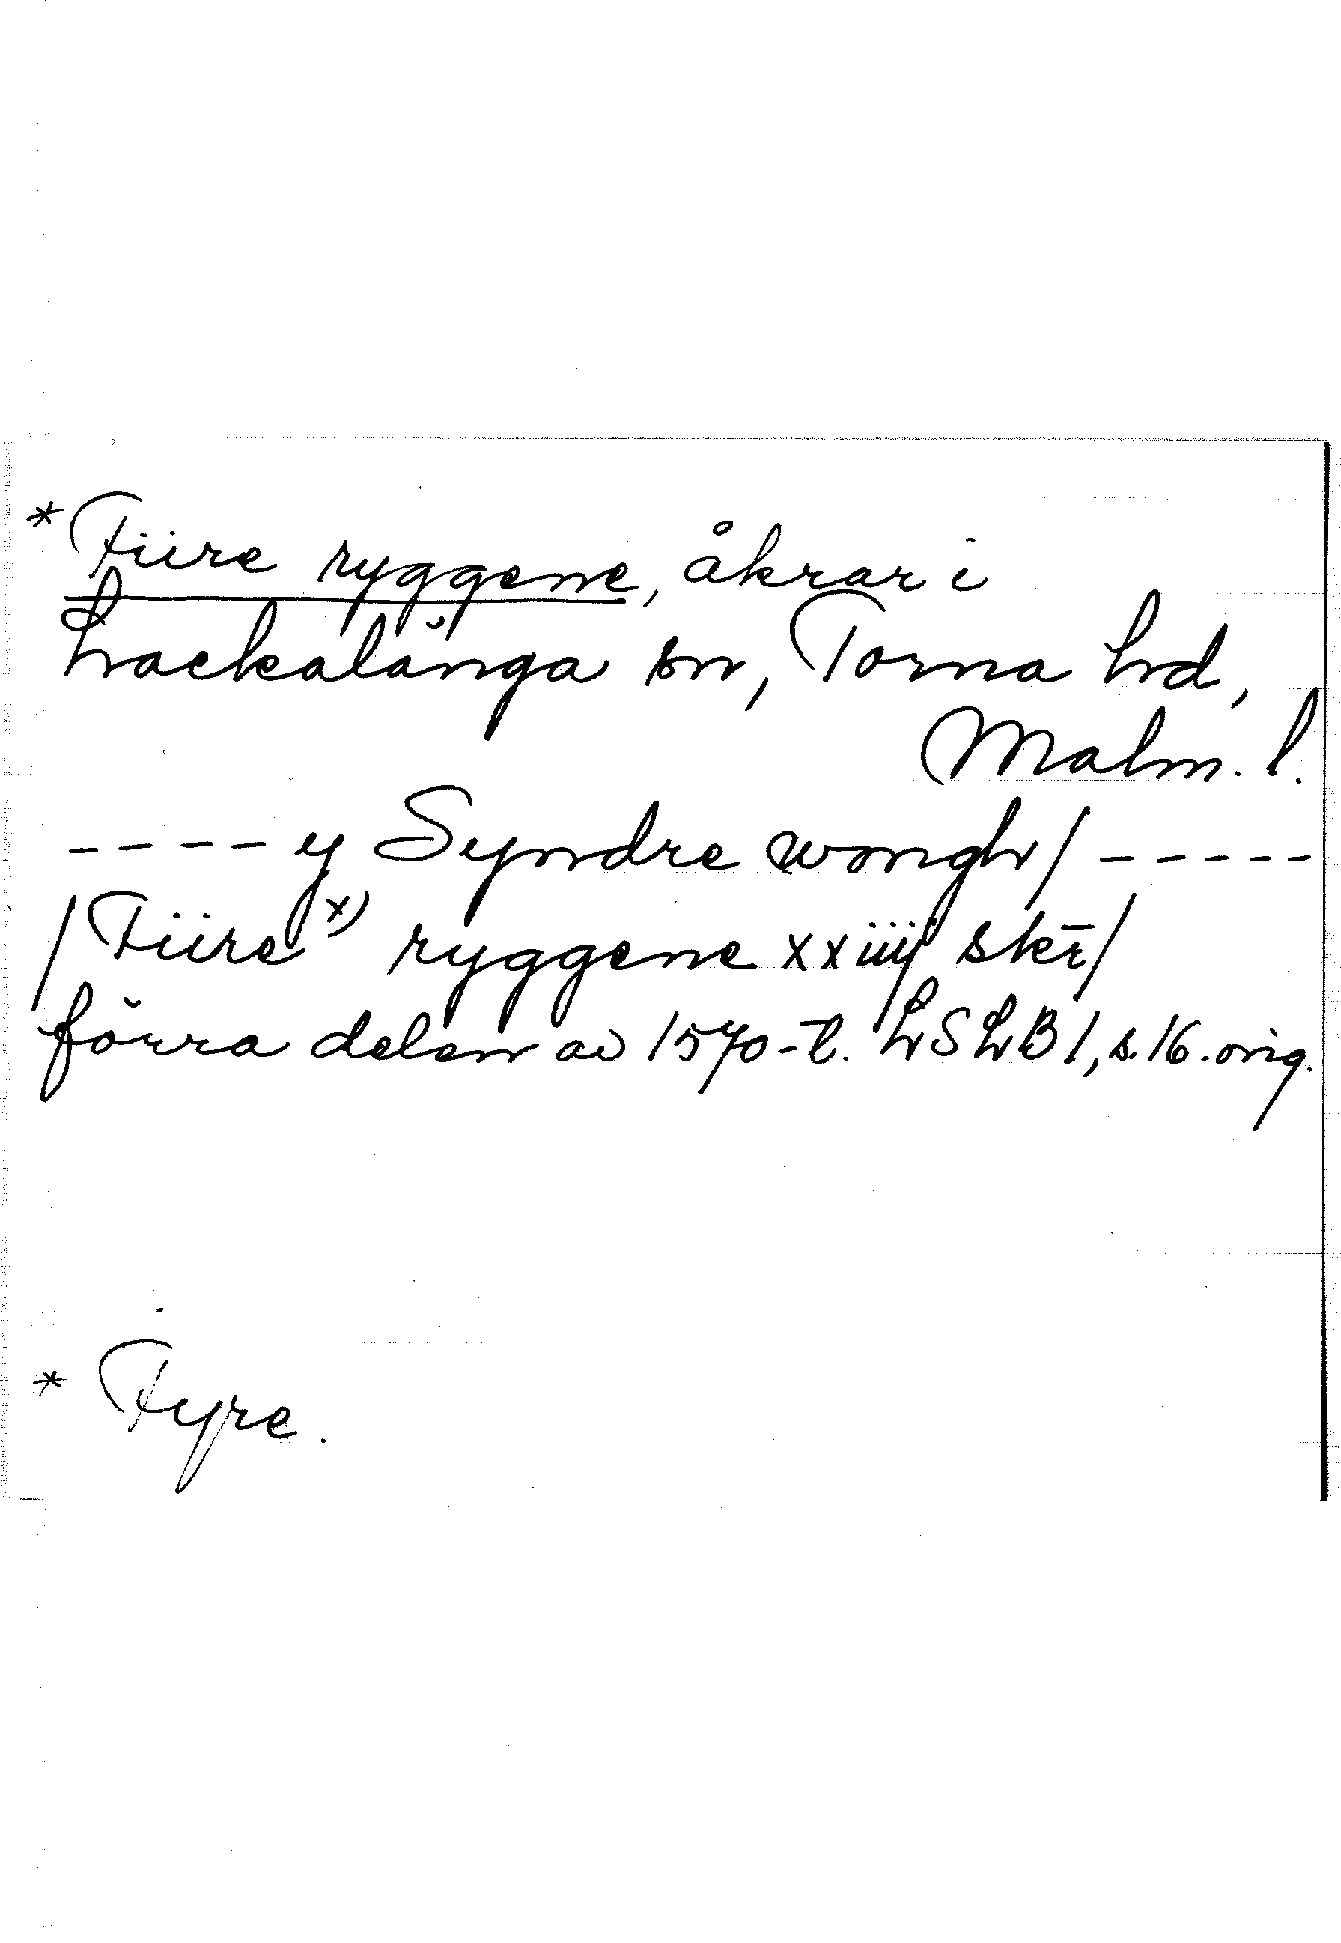 *Fiire ryggene, åkrar i
Hackalänga sn, Torna hd,
Malm. l.
---- y Syndre wongh/ -----
/Fiire x) ryggene xxiiij skr̄/
förra delen av 1570-t. LSLB 1, s. 16. orig.
* Fyre.